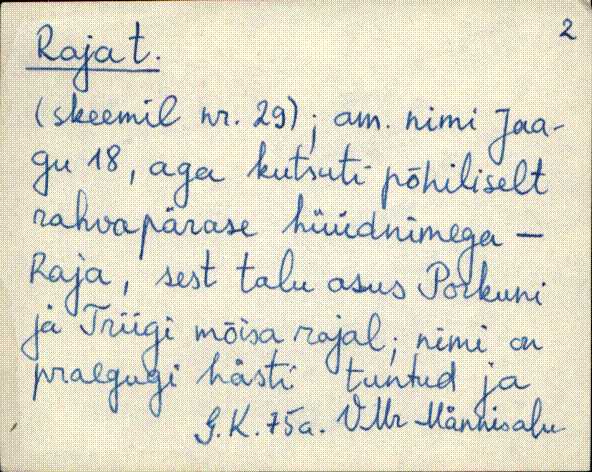 2
Raja t.
(skeemil nr. 29); am. nimi Jaa-
gu 18, aga kutsuti põhiliselt
rahvapärase hüüdnimega —
Raja, sest talu asus Porkuni
ja Triigi mõisa rajal; nimi on
praegugi hästi tuntud ja
G.K. 75a. VMr Männisalu